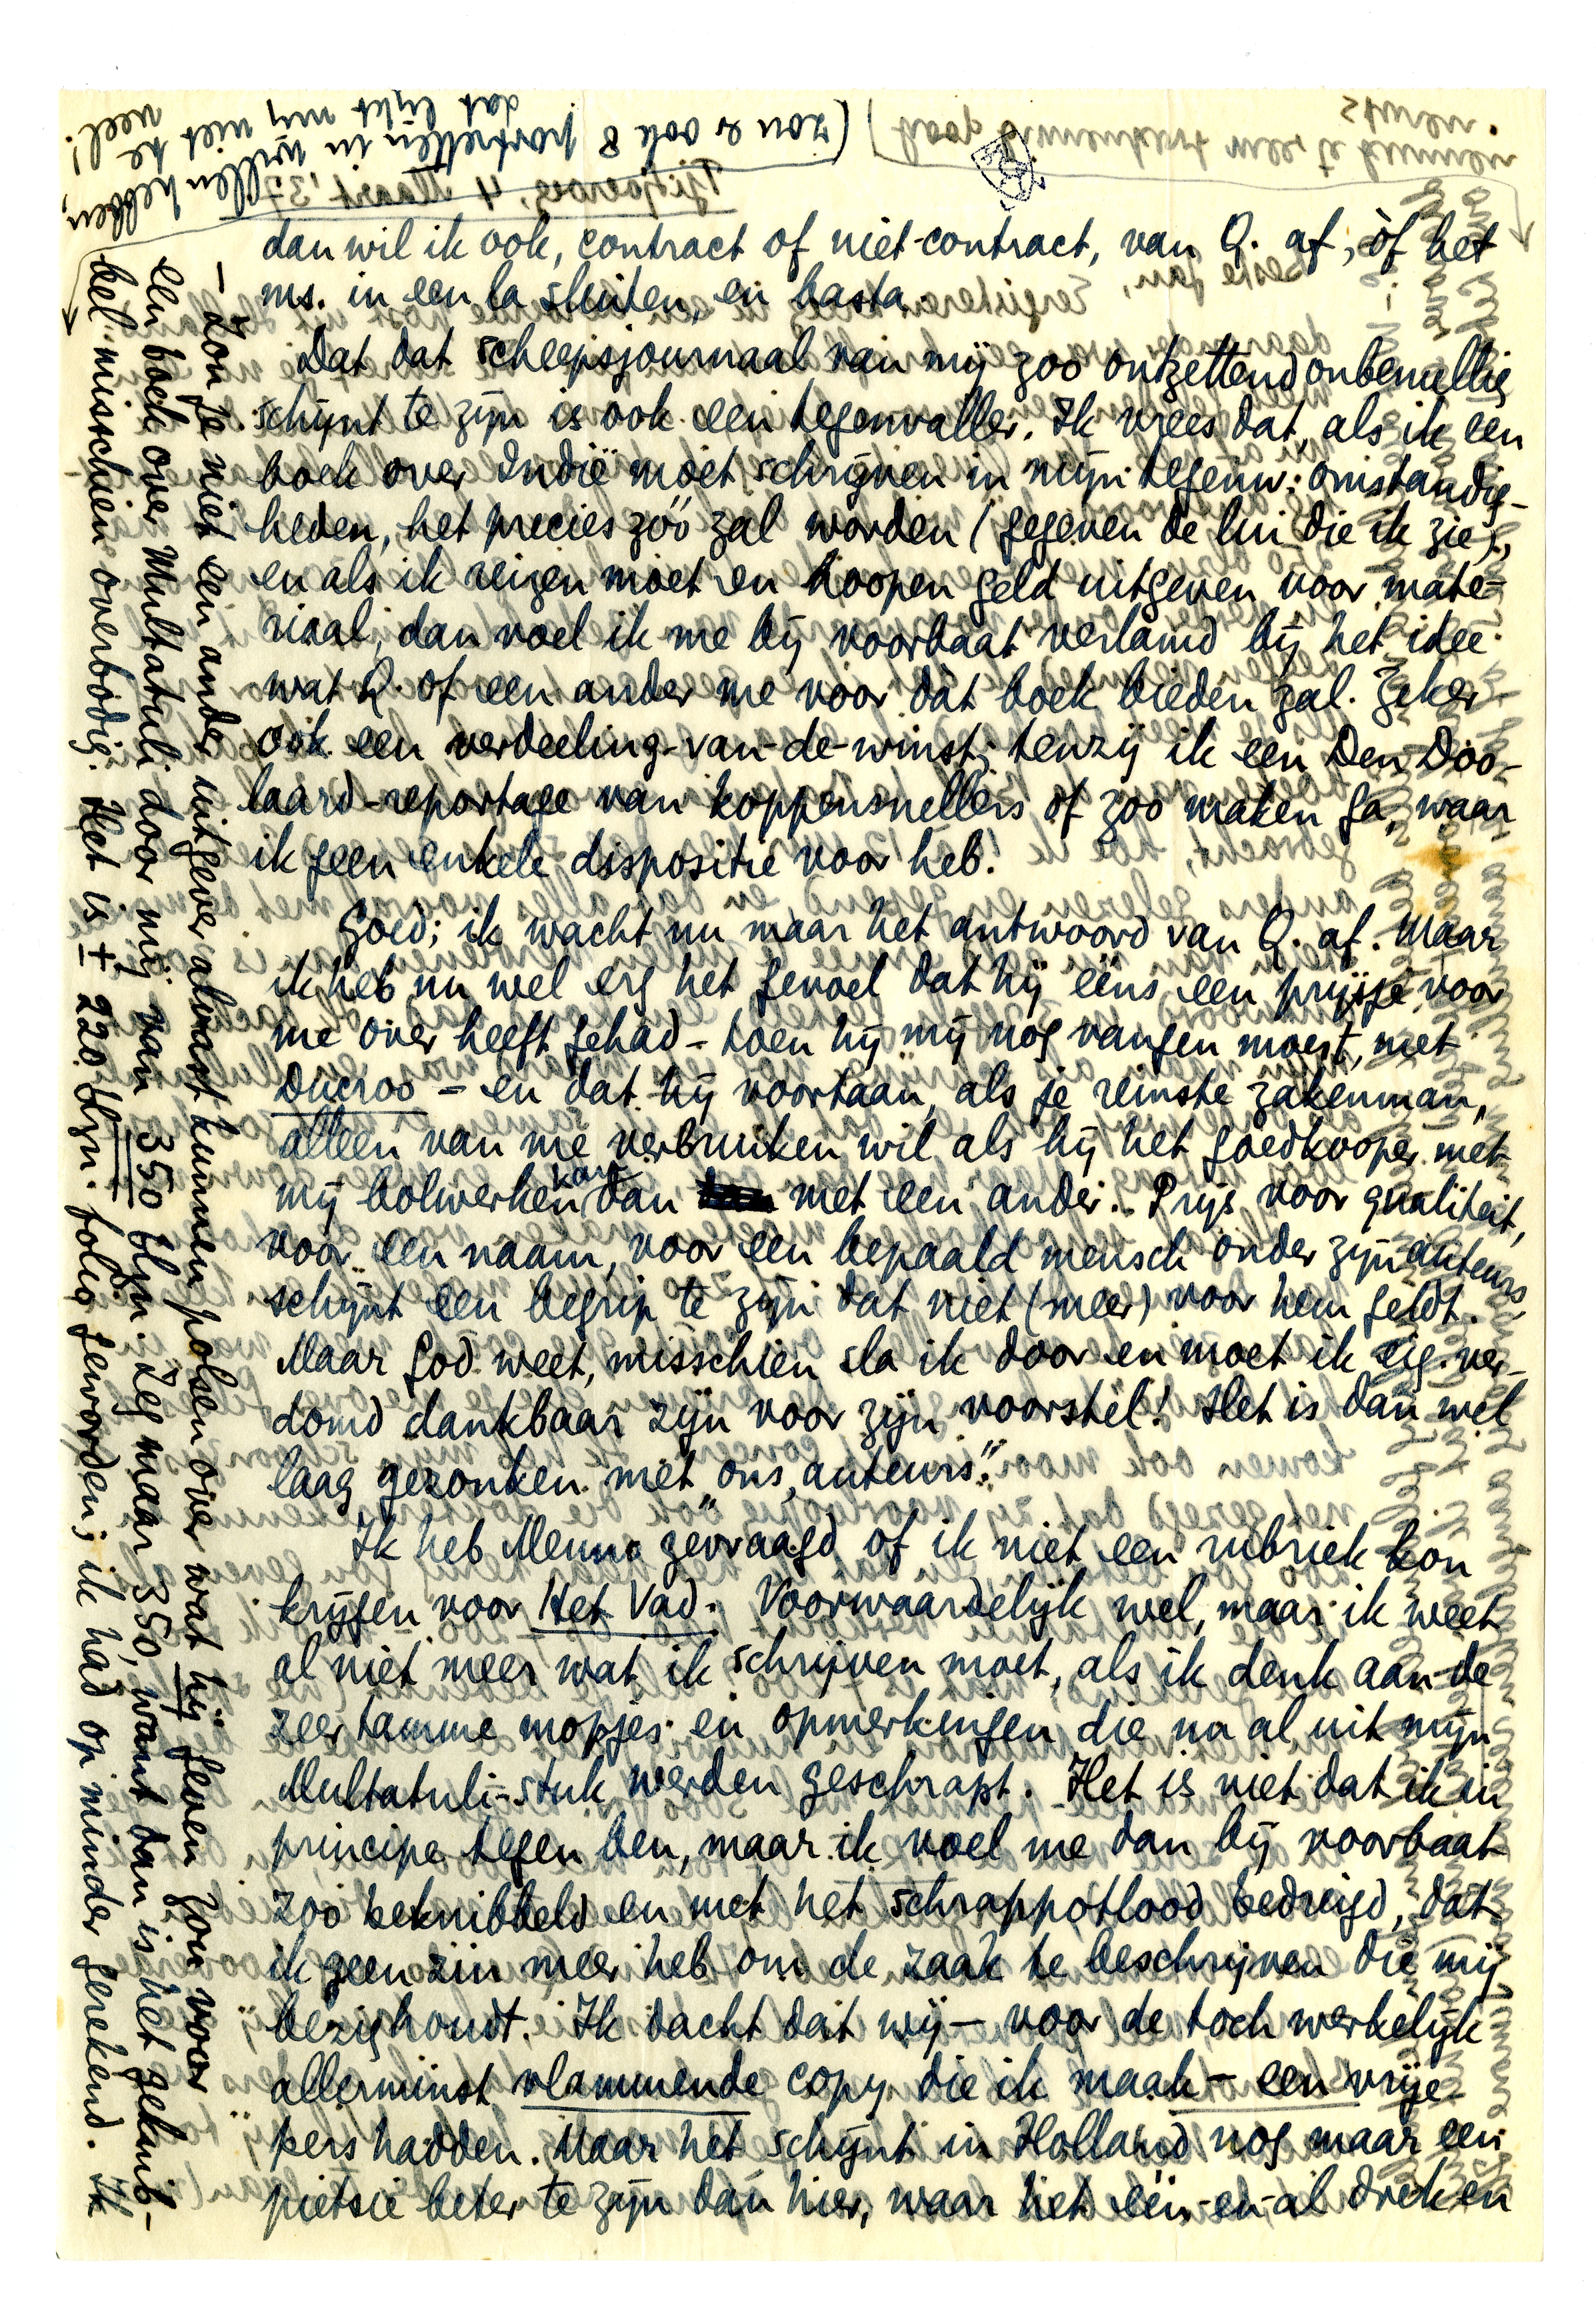 dan wil ik ook, contract of niet-contract, van Q. af; òf het
ms. in een la sluiten, en basta.
Dat dat scheepsjournaal van mij zoo ontzettend onbenullig
schijnt te zijn is ook een tegenvaller. Ik vrees dat, als ik een
boek over Indië moet schrijven in mijn tegenw. omstandig-
heden, het precies zóó zal worden (gegeven de lui die ik zie),
en als ik reizen moet en hoopen geld uitgeven voor mate-
riaal, dan voel ik me bij voorbaat verlamd bij het idee
wat Q. of een ander me voor dàt boek bieden zal. Zeker
ook een verdeeling-van-de-winst; tenzij ik een Den Doo-
laard-reportage van koppensnellers of zoo maken ga, waar
ik geen enkele dispositie voor heb.
Goed; ik wacht nu maar het antwoord van Q. af. Maar
ik heb nu wel erg het gevoel dat hij ééns een prijsje voor
me over heeft gehad – toen hij mij nog vangen moest, met
Ducroo – en dat hij voortaan, als je reinste zakenman,
alleen van me verbruiken wil als hij het goedkooper met
mij bolwerken kan dan met een ander. Prijs voor qualiteit,
voor een naam, voor een bepaald mensch onder zijn auteurs,
schijnt een begrip te zijn dat niet (meer) voor hem geldt.
Maar God weet, misschien sla ik door en moet ik eig. ver-
domd dankbaar zijn voor zijn voorstel! Het is dan wel
laag gezonken met ons, „auteurs”.
Ik heb Menno gevraagd of ik niet een rubriek kon
krijgen voor Het Vad. Voorwaardelijk wel, maar ik weet
al niet meer wat ik schrijven moet, als ik denk aan de
zeer tamme mopjes en opmerkingen die nu al uit mijn
Multatuli-stuk werden geschrapt. Het is niet dat ik in
principe tegen ben, maar ik voel me dan bij voorbaat
zoo beknibbeld en met het schrappotlood bedreigd, dat
ik geen zin meer heb om de zaak te beschrijven die mij
bezighoudt. Ik dacht dat wij – voor de toch werkelijk
allerminst vlammende copy die ik maak – een vrije
pers hadden. Maar het schijnt in Holland nog maar een
pietsie beter te zijn dan hier, waar het één-en-al drek en
– Zou je niet een ander uitgever alvast kunnen polsen over wat hij geven zou voor
een boek over Multatuli door mij van 350 blzn. Zeg maar 350, want dan is het geknib-
bel misschien overbodig. Het is ± 220 blzn. folio geworden; ik had op minder gerekend. Ik
(zou er ook 8 portretten in willen hebben,
dat lijkt mij niet te veel!